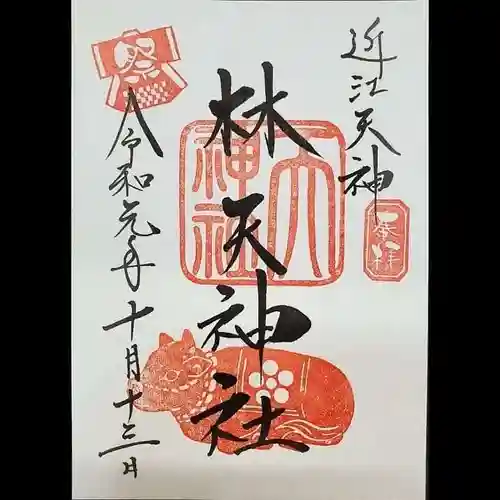 近江天神
奉拝
林天神社
天神社
令和元年十月十三日
祭